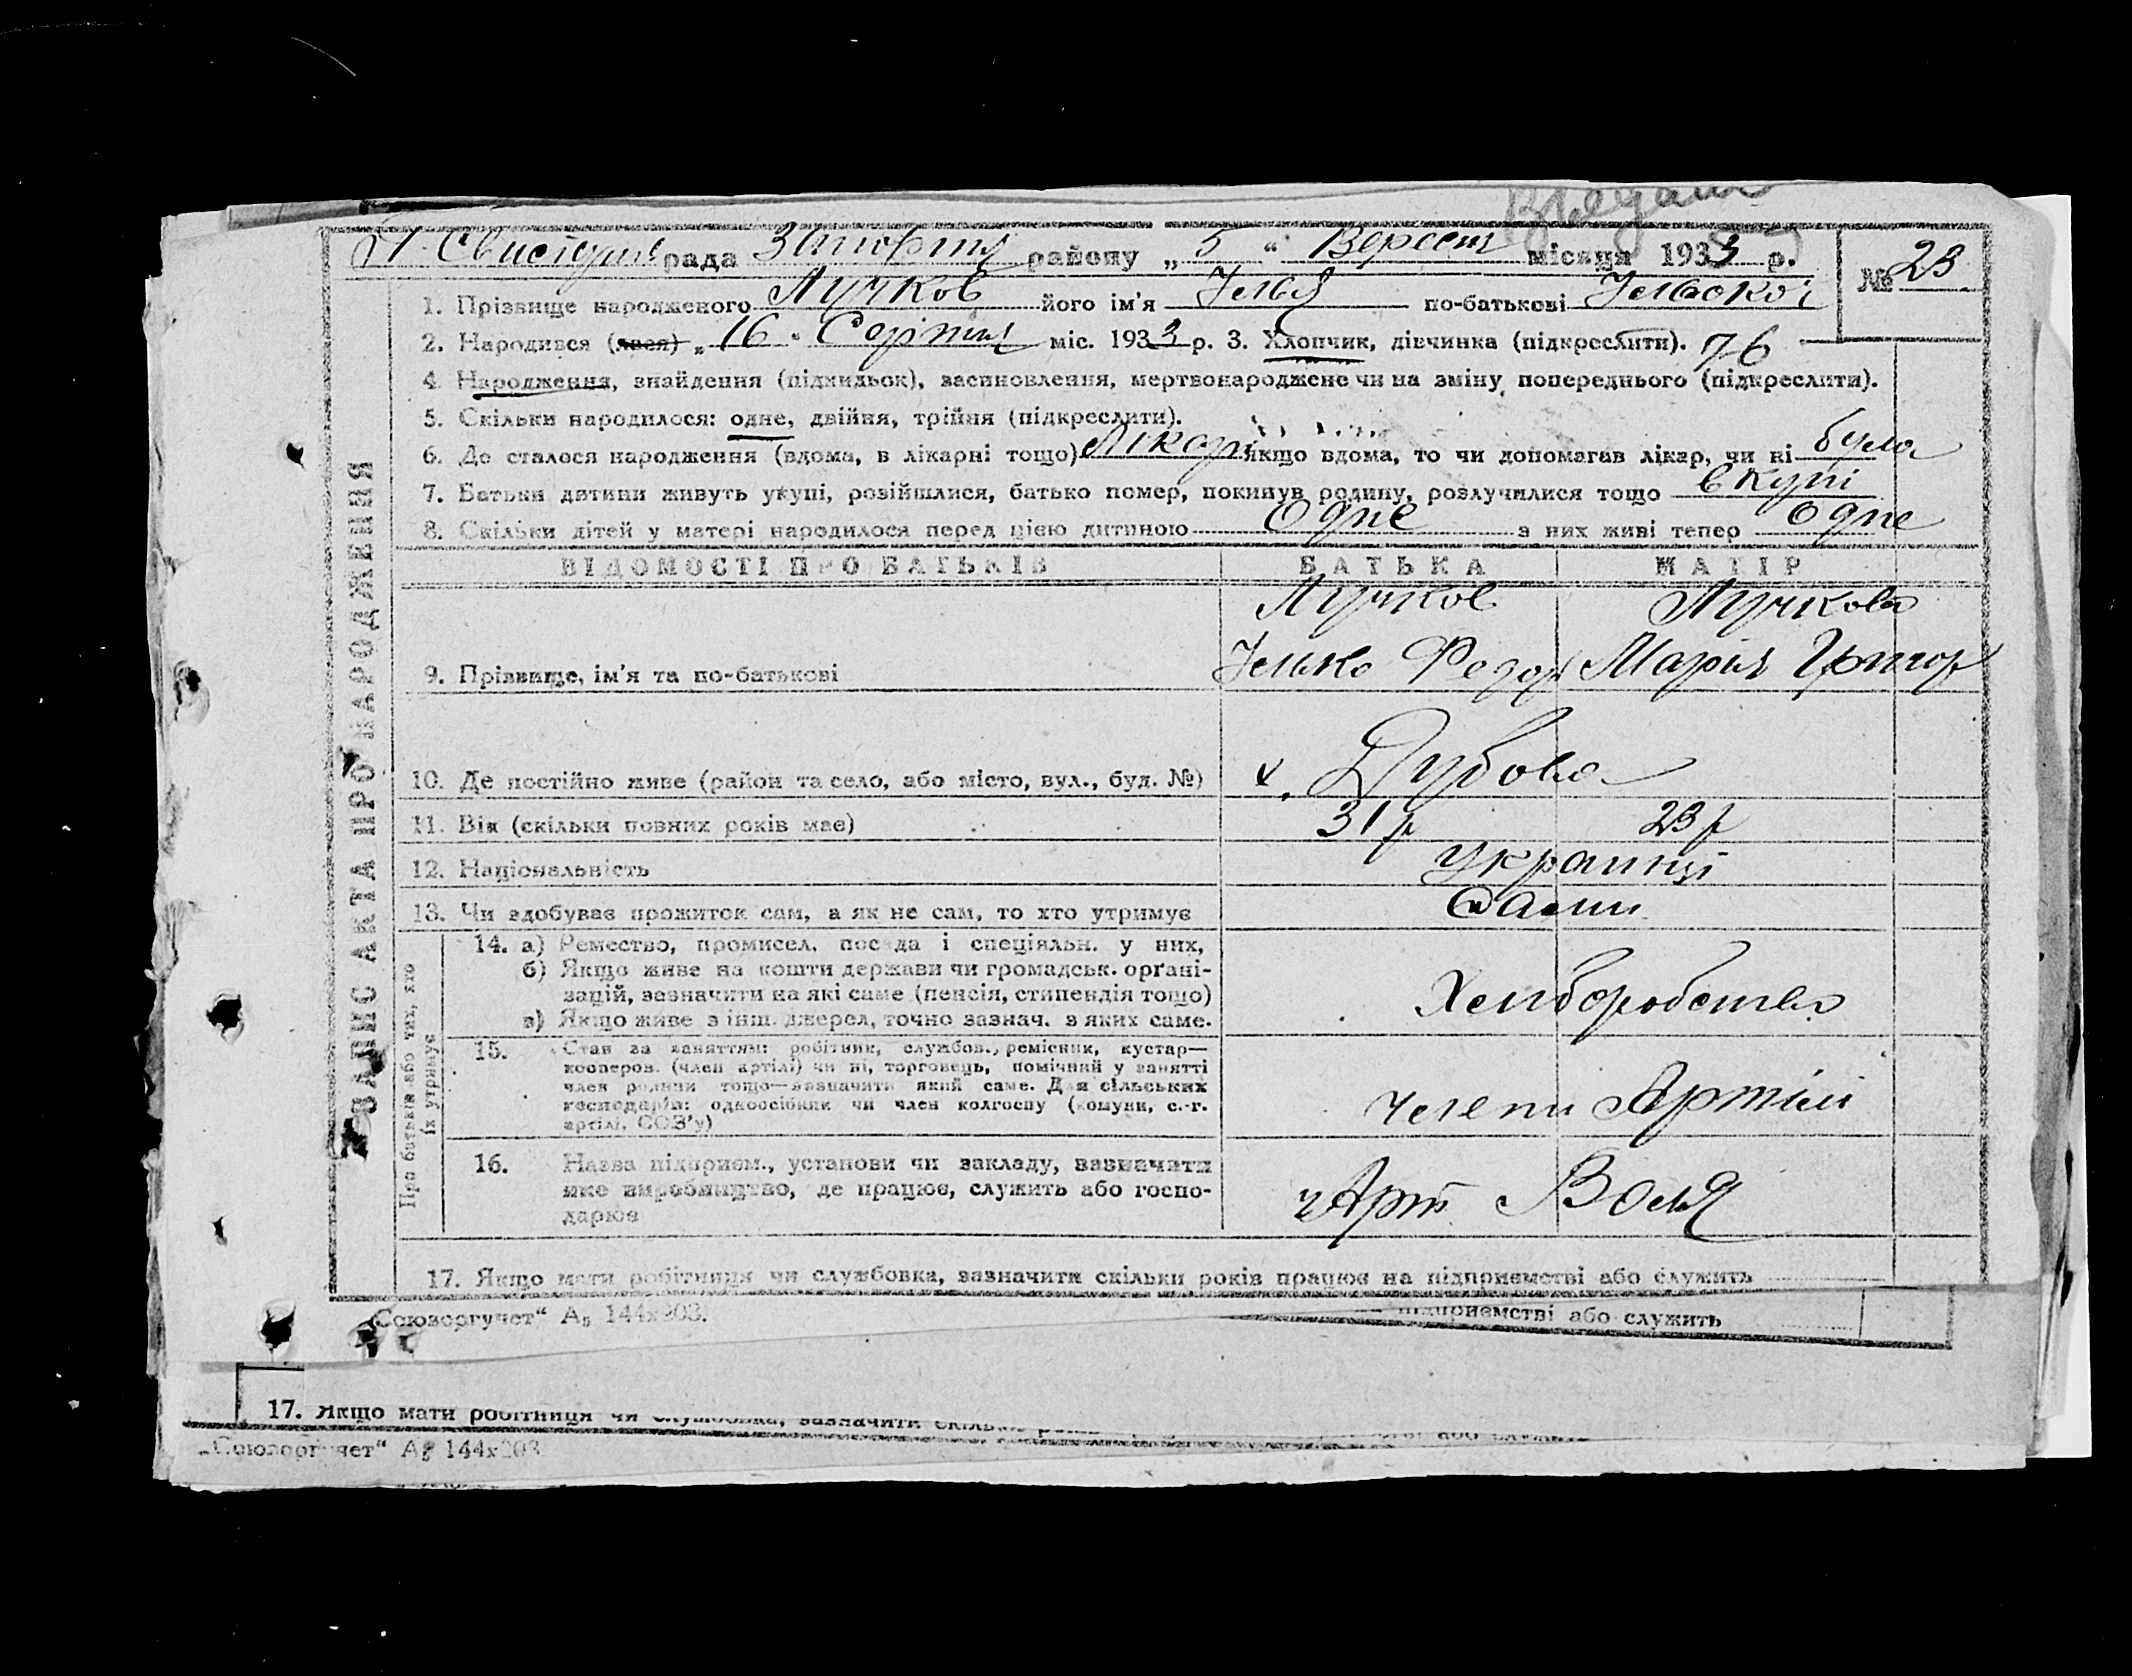 рада району „ 5 “ Вересн місяця 1933 р.
№ 23
1. Прізвище народженого Лучков його ім'я Ілья по-батькові
2. Народився (лася) „ 16 “ Серпня міс. 1933 р. 3. Хлопчик, дівчинка (підкреслити). 76
4. Народження, знайдення (підкидьок), засиновлення, мертвонароджене чи на зміну попереднього (підкреслити).
5. Скільки народилося: одне, двійня, трійня (підкреслити).
6. Де сталося народження (вдома, в лікарні тощо) Лікар якщо вдома, то чи допомагав лікар, чи ні була
7. Батьки дитини живуть укупі, розійшлися, батько помер, покинув родину, розлучилися тощо вкупі
8. Скільки дітей у матері народилося перед цією дитиною Одне з них живі тепер одне
ВІДОМОСТІ ПРО БАТЬКІВ БАТЬКА МАТІР
Лучков Лучкова
9. Прізвище, ім'я та по-батькові Ілько Федор Марія Григор
10. Де постійно живе (район та село, або місто, вул., буд. №) х. Дубова
11. Вік (скільки повних років має) 31 р 23 р
12. Національність Украинці
13. Чи здобуває прожиток сам, а як не сам, то хто утримує Сами
ЗАПИС АКТА ПРО НАРОДЖЕННЯ
Про батьків або тих, хто їх утримує
14. а) Ремество, промисел, посада і спеціяльн. у них,
б) Якщо живе на кошти держави чи громадськ. орґані-
зацій, зазначити на які саме (пенсія, стипендія тощо)
в) Якщо живе з інш. джерел, точно зазнач. з яких саме.
Хлиборобства
15. Стан за заняттям: робітник, службов., ремісник, кустар—
кооперов. (член артілі) чи ні, торговець, помічний у занятті
член родини тощо—зазначити який саме. Для сільських
господарів: одноосібник чи член колгоспу (комуни, с.-г.
артілі, СОЗ'у)
члени Артілі
16. Назва підприєм., установи чи закладу, зазначити
яке виробництво, де працює, служить або госпо-
дарює
Арт Воля
17. Якщо мати робітниця чи службовка, зазначити скільки років працює на підприємстві або служить
„Союзоргучет“ А5 144х203.
підприємстві або служить
17. Якщо мати робітниця чи службовка, зазначити
„Союзоргучет“ А5 144х203